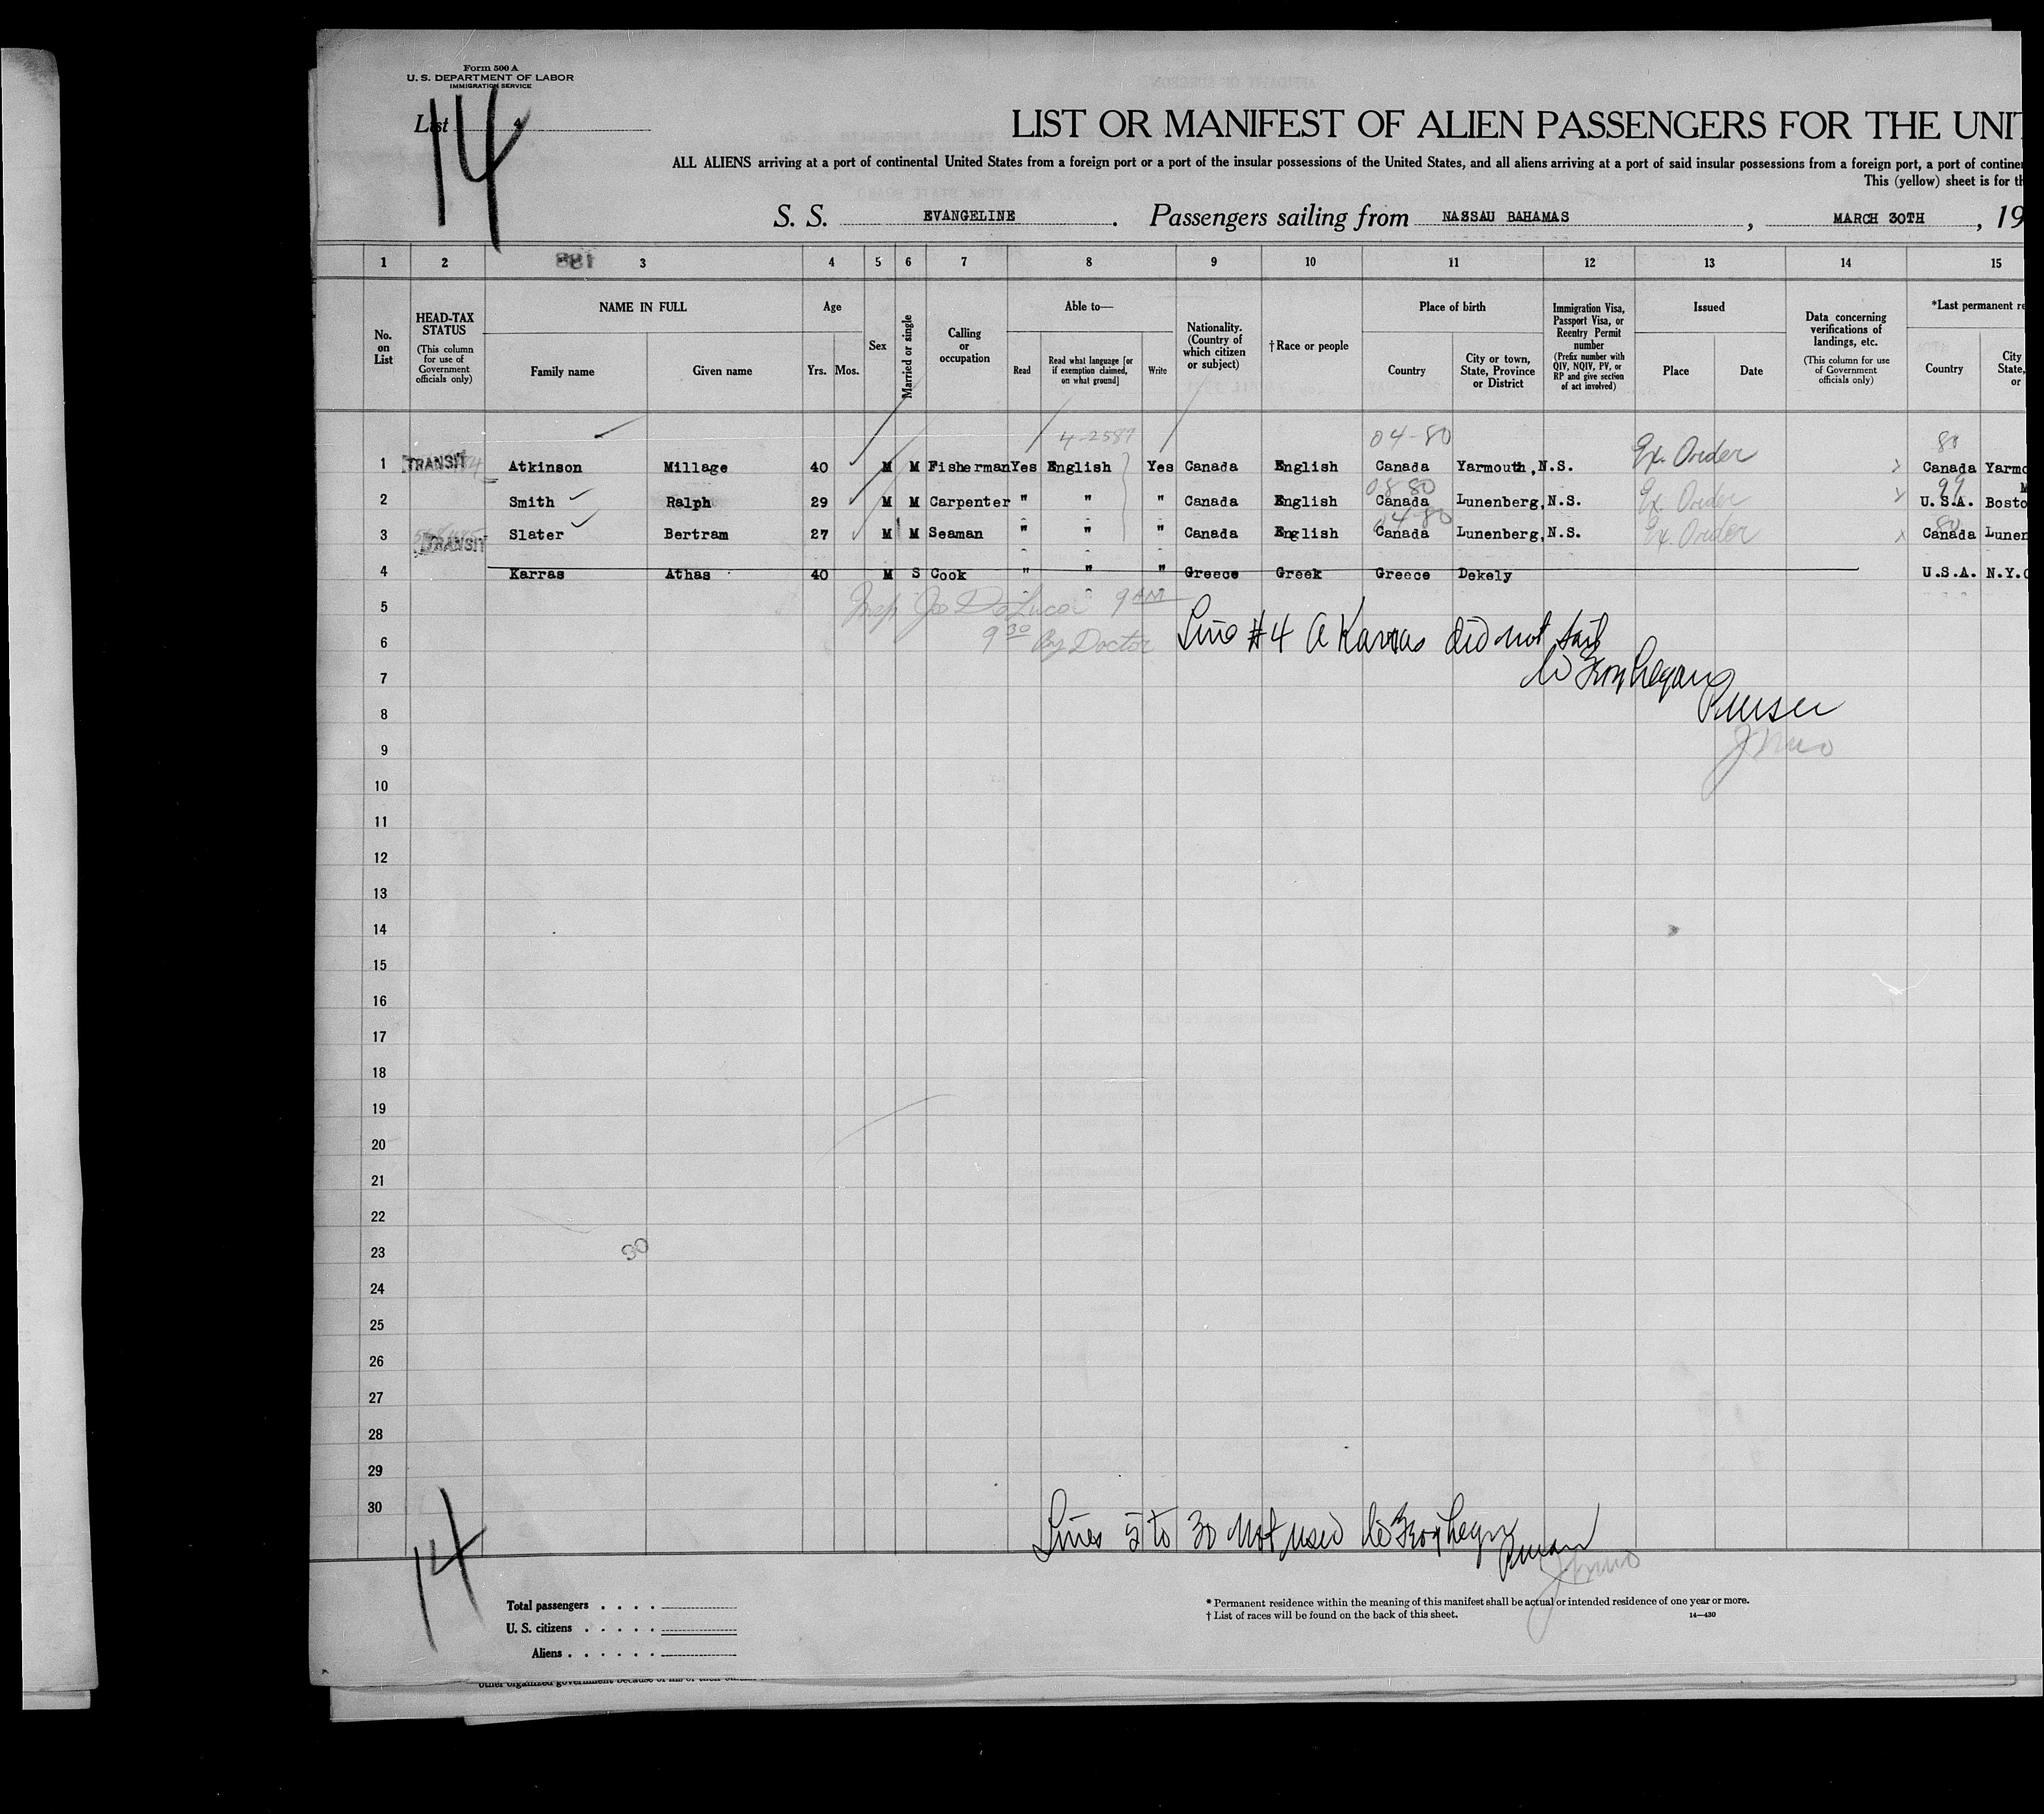 Form 500 A
U. S. DEPARTMENT OF LABOR
IMMIGRATION SERVICE
List 4
14
LIST OR MANIFEST OF ALIEN PASSENGERS FOR THE UNIT
ALL ALIENS arriving at a port of continental United States from a foreign port or a port of the insular possessions of the United States, and all aliens arriving at a port of said insular possessions from a foreign port, a port of contine
This (yellow) sheet is for th
S. S. EVANGELINE. Passengers sailing from NASSAU BAHAMAS, MARCH 30TH, 19
1 2 3 4 5 6 7 8 9 10 11 12 13 14 15
No. on List
HEAD-TAX STATUS (This column for use of Government officials only)
NAME IN FULL
Family name Given name
Age
Yrs. Mos.
Sex
Married or single
Calling or occupation
Able to—
Read
Read what language [or if exemption claimed, on what ground]
Write
Nationality. (Country of which citizen or subject)
†Race or people
Place of birth
Country
City or town, State, Province or District
Immigration Visa, Passport Visa, or Reentry Permit number (Prefix number with QIV, NQIV, PV, or RP and give section of act involved)
Issued
Place Date
Data concerning verifications of landings, etc. (This column for use of Government officials only)
*Last permanent re
Country
City State, or
4-2587 04-80 80
1 TRANSIT Atkinson Millage 40 M M Fisherman Yes English Yes Canada English Canada Yarmouth, N.S. Ex. Order Canada Yarmo
08 80 99 M
2 Smith Ralph 29 M M Carpenter " " " Canada English Canada Lunenberg, N.S. Ex. Order U.S.A. Bosto
04-80 80
3 TRANSIT Slater Bertram 27 M M Seaman " " " Canada English Canada Lunenberg, N.S. Ex. Order Canada Lunen
4 Karras Athas 40 M S Cook " " " Greece Greek Greece Dekely U.S.A. N.Y.C
5 Insp Joe DeLuca 9 AM
6 9 30 By Doctor Line #4 A Karras did not sail
7
8 Purser
9
10
11
12
13
14
15
16
17
18
19
20
21
22
23 30
24
25
26
27
28
29
30
Lines 5 to 30 not used
Purser
14
Total passengers . . . .
U. S. citizens . . . . .
Aliens . . . . . .
* Permanent residence within the meaning of this manifest shall be actual or intended residence of one year or more.
† List of races will be found on the back of this sheet. 14—430